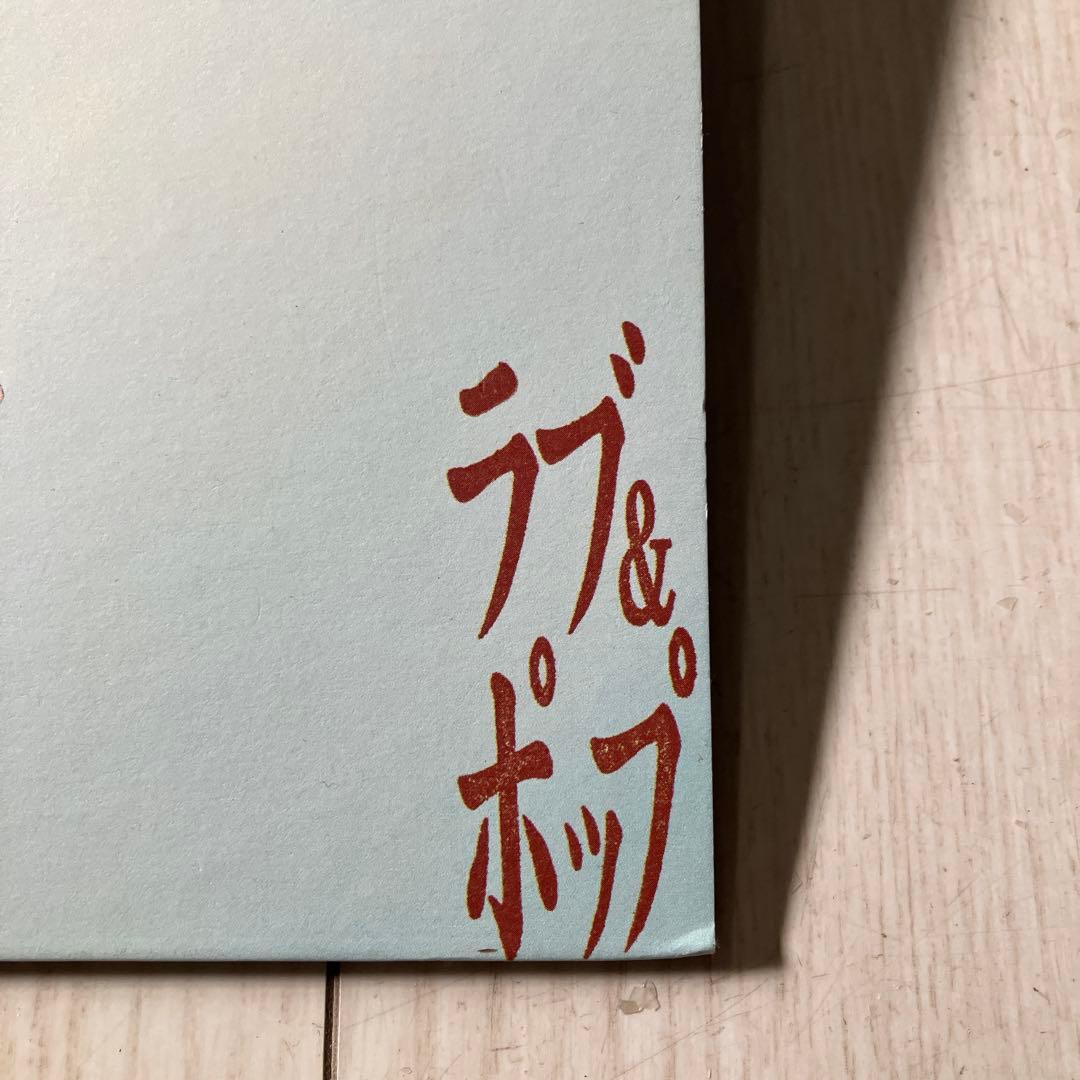 ラブ&
ポップ